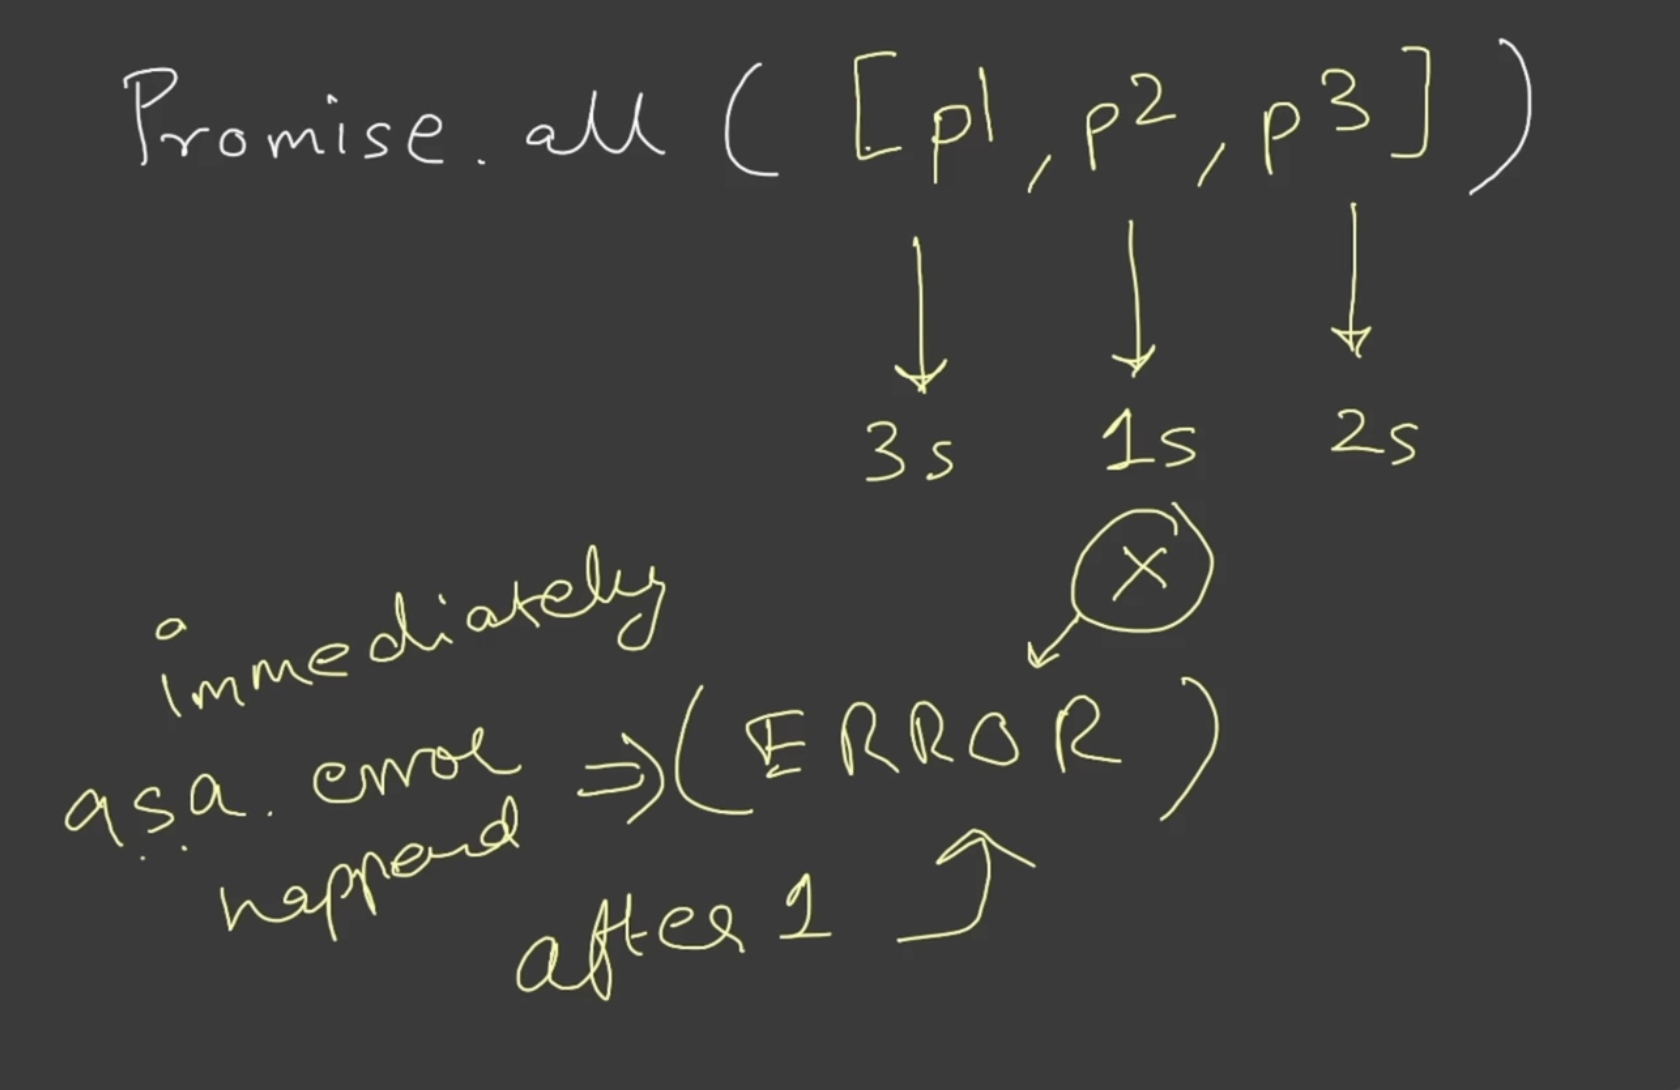 Promise.all ( [p1, p2, p3] )
3s 1s 2s
X
immediately
asa. error => (ERROR)
happend
after 1